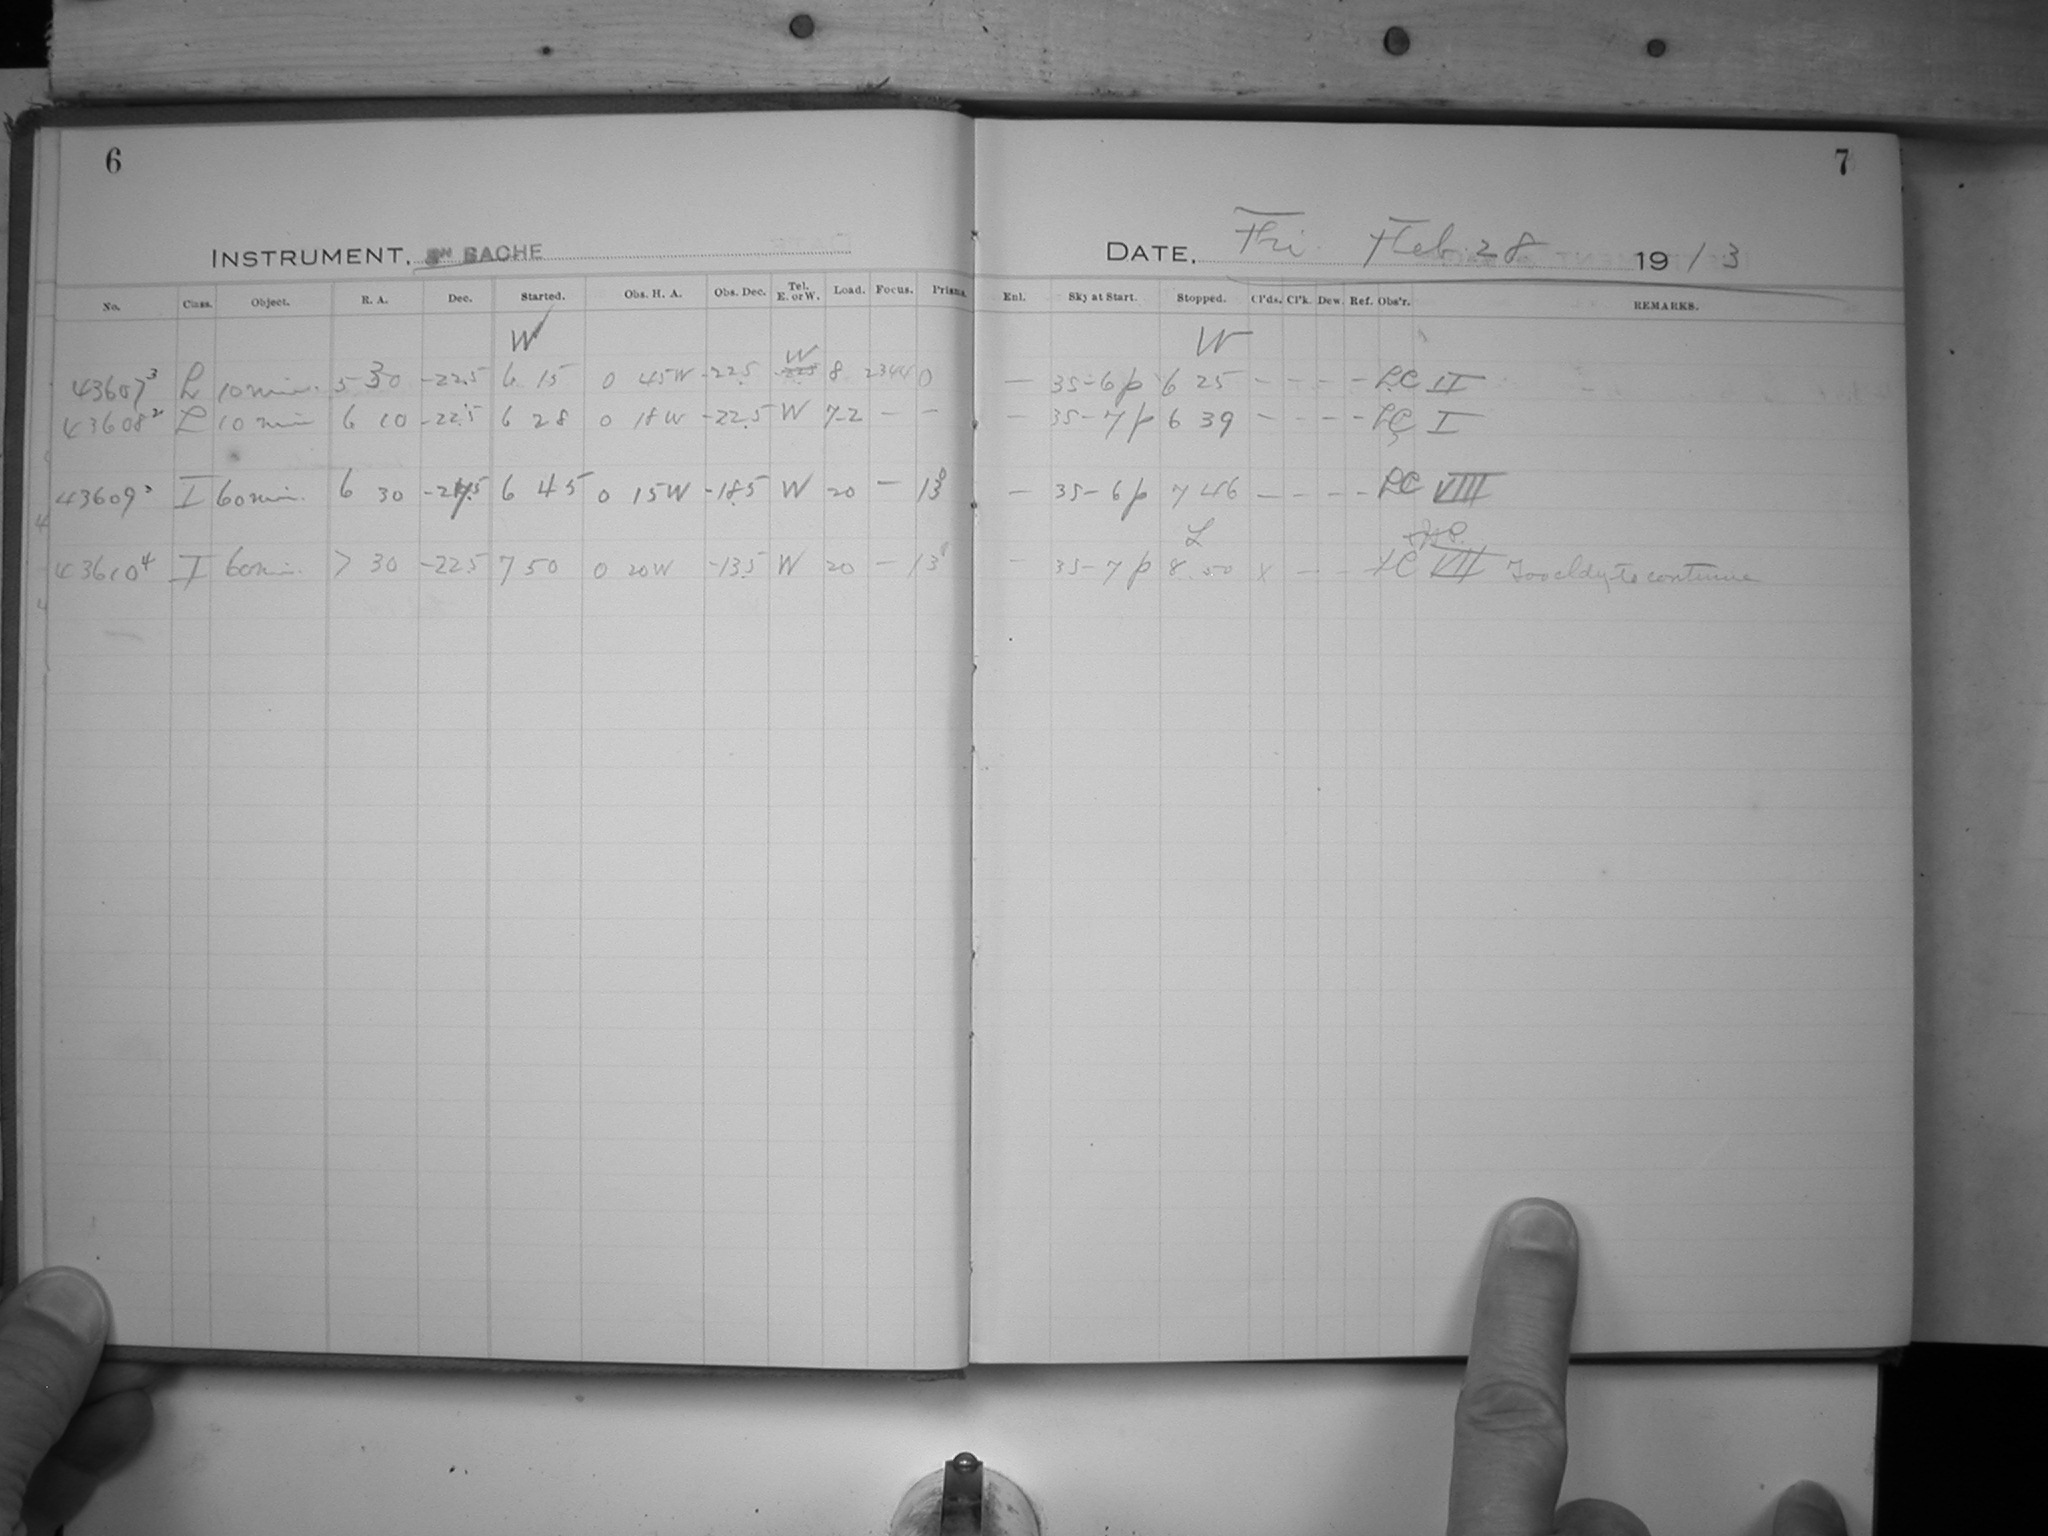 6
7
INSTRUMENT, 8IN BACHE
DATE, Fri. Feb. 28 1913
No. Class. Object. R. A. Dec. Started. Obs. H. A. Obs. Dec. Tel. E. or W. Load. Focus. Prisms. Enl. Sky at Start. Stopped. Cl'ds. Cl'k. Dew. Ref. Obs'r. REMARKS.
W W
43607³ L 10 min. 5 30 -22.5 6 15 0 45W -22.5 W 8 2344 0 — 35-6p 6 25 - - - - LC II
43608² L 10 min 6 10 -22.5 6 28 0 18W -22.5 W 7-2 — — — 35-7p 6 39 - - - - LC I
43609² I 60 min. 6 30 6 45 0 15W -18.5 W 20 — 13⁸ — 35-6p 7 46 - - - - LC VIII
L
43610⁴ I 60 min. 7 30 -22.5 7 50 0 20W -13.5 W 20 — 13⁸ — 35-7p 8.50 x - - - LC VII Too cldy to continue